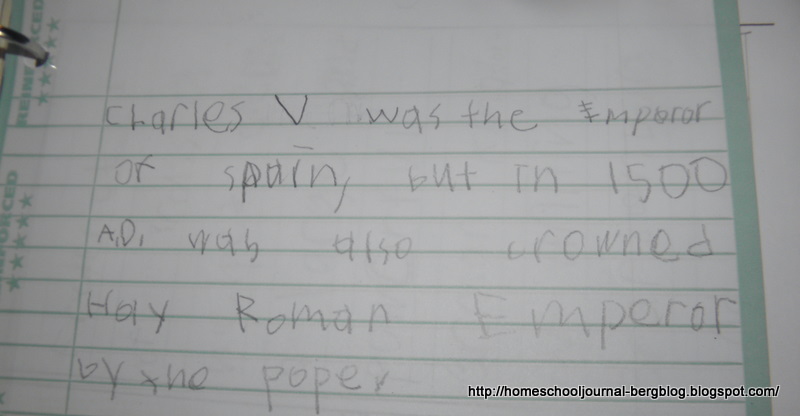 REINFORCED
REINFORCED
Charles V was the Emporor
of spain, but in 1500
A.D. was also crowned
Holy Roman Emperor
by the poper
http://homeschooljournal-bergblog.blogspot.com/